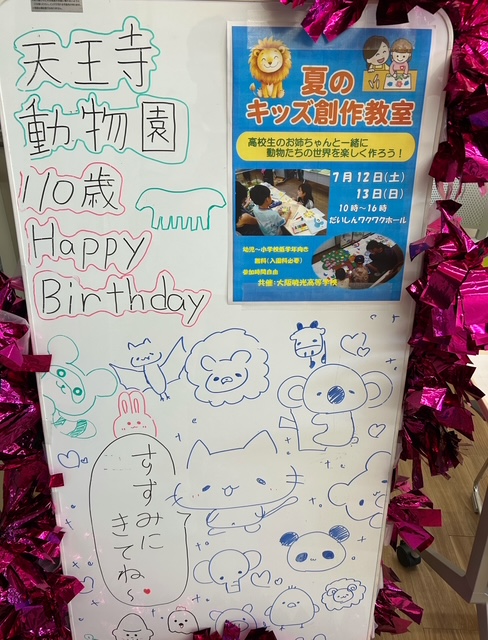 天王寺
動物園
110歳
Happy
Birthday
夏の
キッズ創作教室
高校生のお姉ちゃんと一緒に
動物たちの世界を楽しく作ろう!
7月12日(土)
13日(日)
10時〜16時
だいしんワクワクホール
幼児〜小学校低学年向き
無料(入園料必要)
参加時間自由
共催:大阪暁光高等学校
すずみに
きてね〜